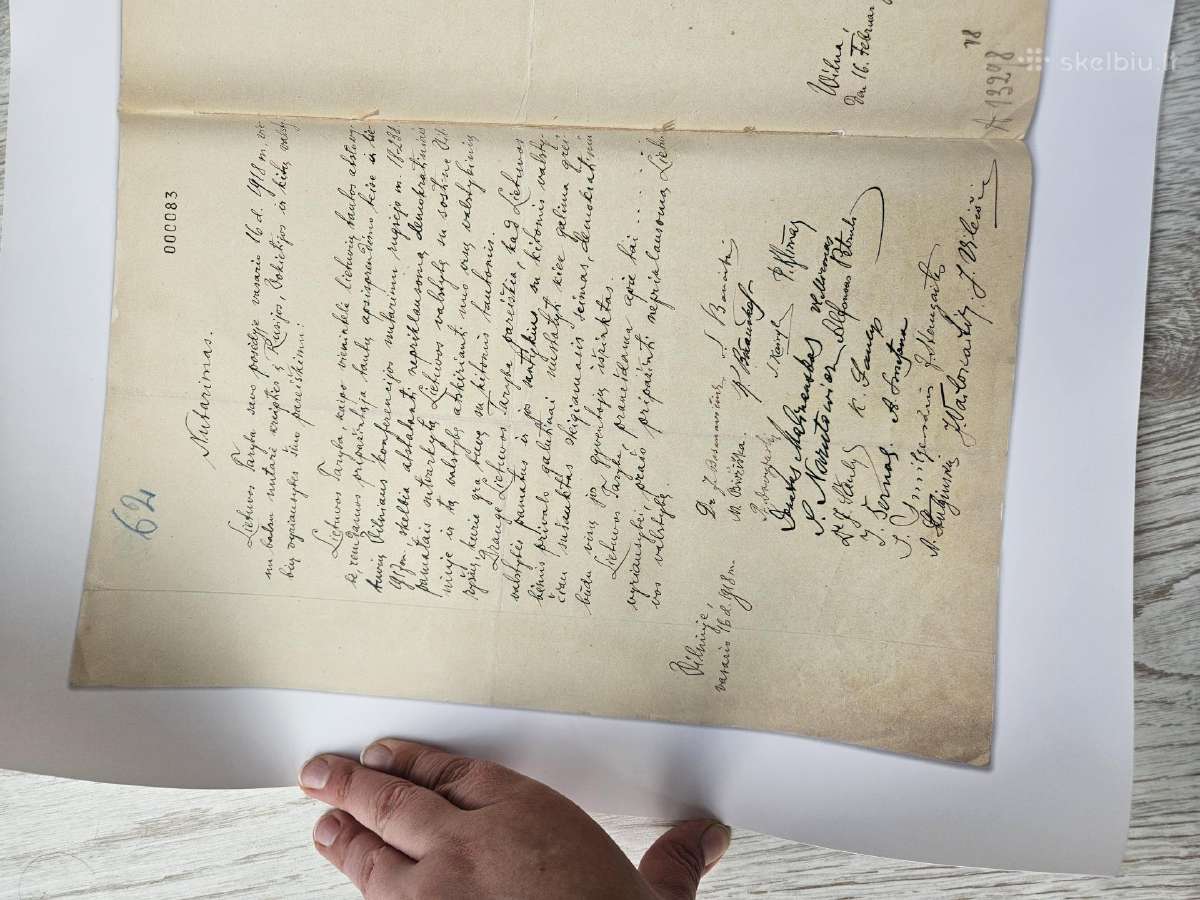 62
000083
Nutarimas.
Lietuvos Taryba savo posėdyje vasario 16 d. 1918 m. vie-
nu balsu nutarė kreiptis į Rusijos, Vokietijos ir kitų valsty-
bių vyriausybes šiuo pareiškimu:
Lietuvos Taryba, kaipo vienintelė lietuvių tautos atstovy-
bė, remdamos pripažintąja tautų apsisprendimo teise ir lie-
tuvių Vilniaus konferencijos nutarimu rugsėjo m. 18-23 d.
1917 m., skelbia atstatanti nepriklausomą, demokratiniais
pamatais sutvarkytą Lietuvos valstybę su sostine Vil-
niuje ir tą valstybę atskirianti nuo visų valstybinių
ryšių, kurie yra buvę su kitomis tautomis.
Drauge Lietuvos Taryba pareiškia, kad Lietuvos
valstybės pamatus ir jos santykius su kitomis valsty-
bėmis privalo galutinai nustatyti kiek galima grei-
čiau sušauktas steigiamasis seimas, demokratiniu
būdu visų jo gyventojų išrinktas.
Lietuvos Taryba, pranešdama apie tai
vyriausybei, prašo pripažinti nepriklausomą Lietu-
vos valstybę.
Vilniuje,
vasario 16 d. 1918 m.
Dr. J. Basanavičius
S. Banaitis
M. Biržiška.
K. Bizauskas
Pr. Dovydaitis
S. Kairys
P. Klimas
Donatas Malinauskas
Vl. Mironas
S. Narutowicz
Alfonsas Petrulis
Dr. J. Šaulys
K. Šaulys
J. Šernas
A. Smetona
J. Smilgevičius
Justinas Staugaitis
A. Stulginskis
J. Vailokaitis
J. Vileišis
Wilna,
den 16. Februar
18
A 13298
skelbiu.lt